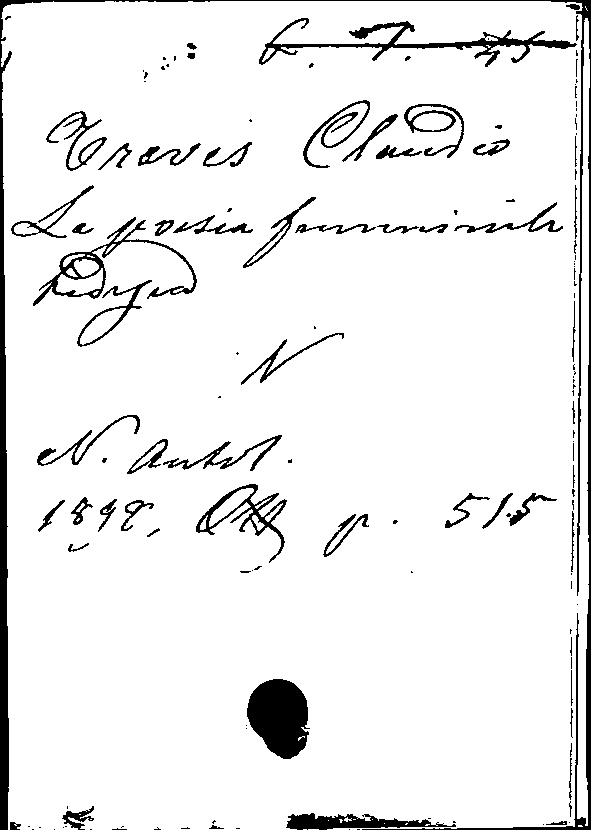 L. T. 45
Treves Claudio
La poesia femminile
tedesca
N
N. Antol.
1898, Ott p. 515